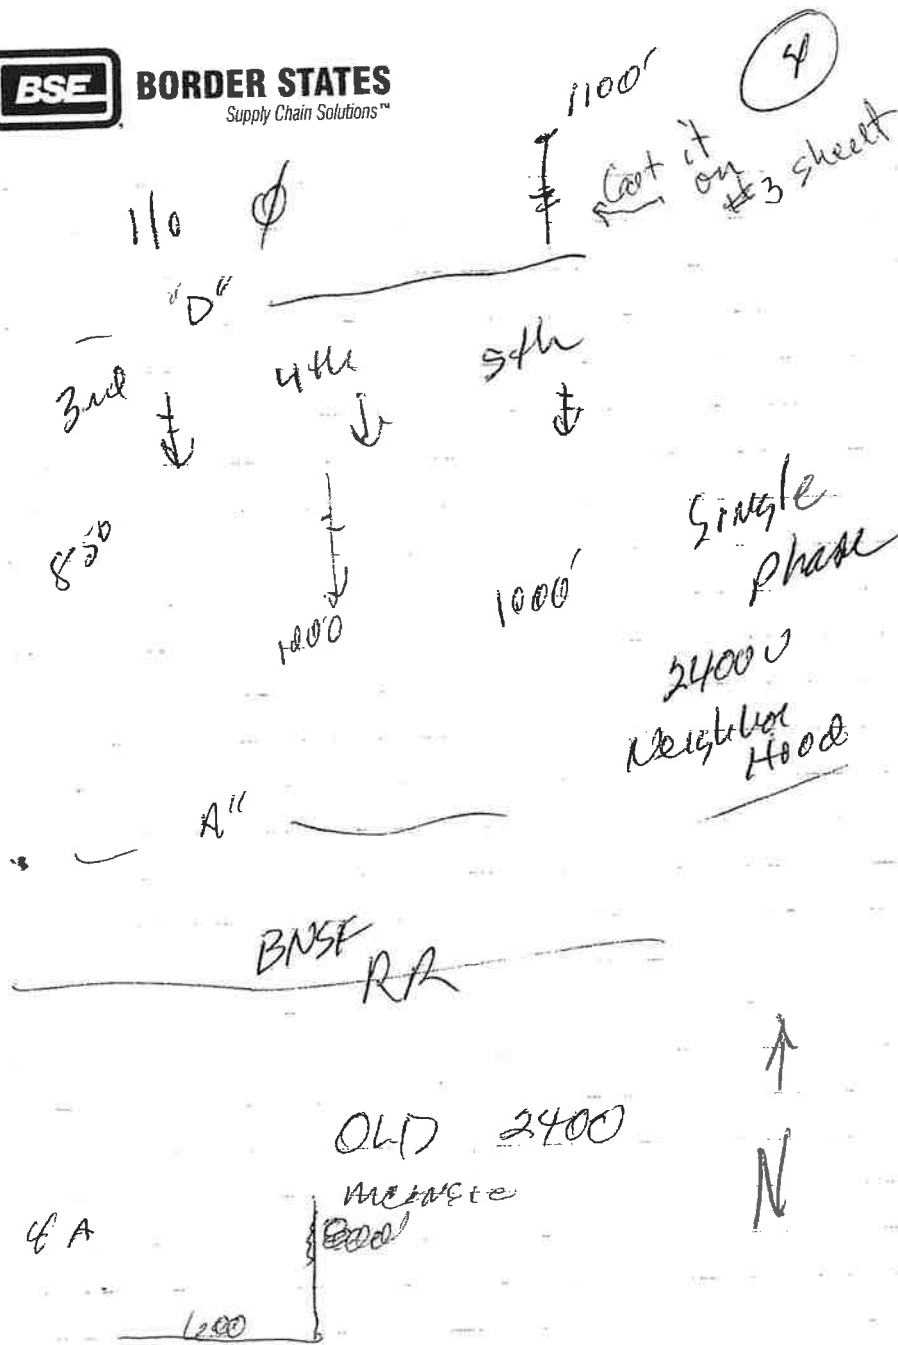 BSE BORDER STATES
Supply Chain Solutions™
4
1100'
Got it
on
#3 sheet
1/0 Ø
"D"
3rd 4th 5th
850
1000'
Single
Phase
2400 V
Neighbor
Hood
A"
BNSF
RR
N
OLD 2400
1200